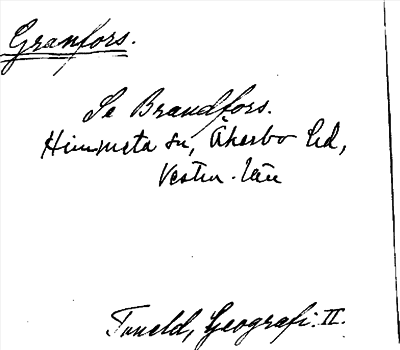 Granfors.
Se Brandfors.
Himmeta sn, Åkerbo hd,
Vestm. län
Tuneld, Geografi. II.